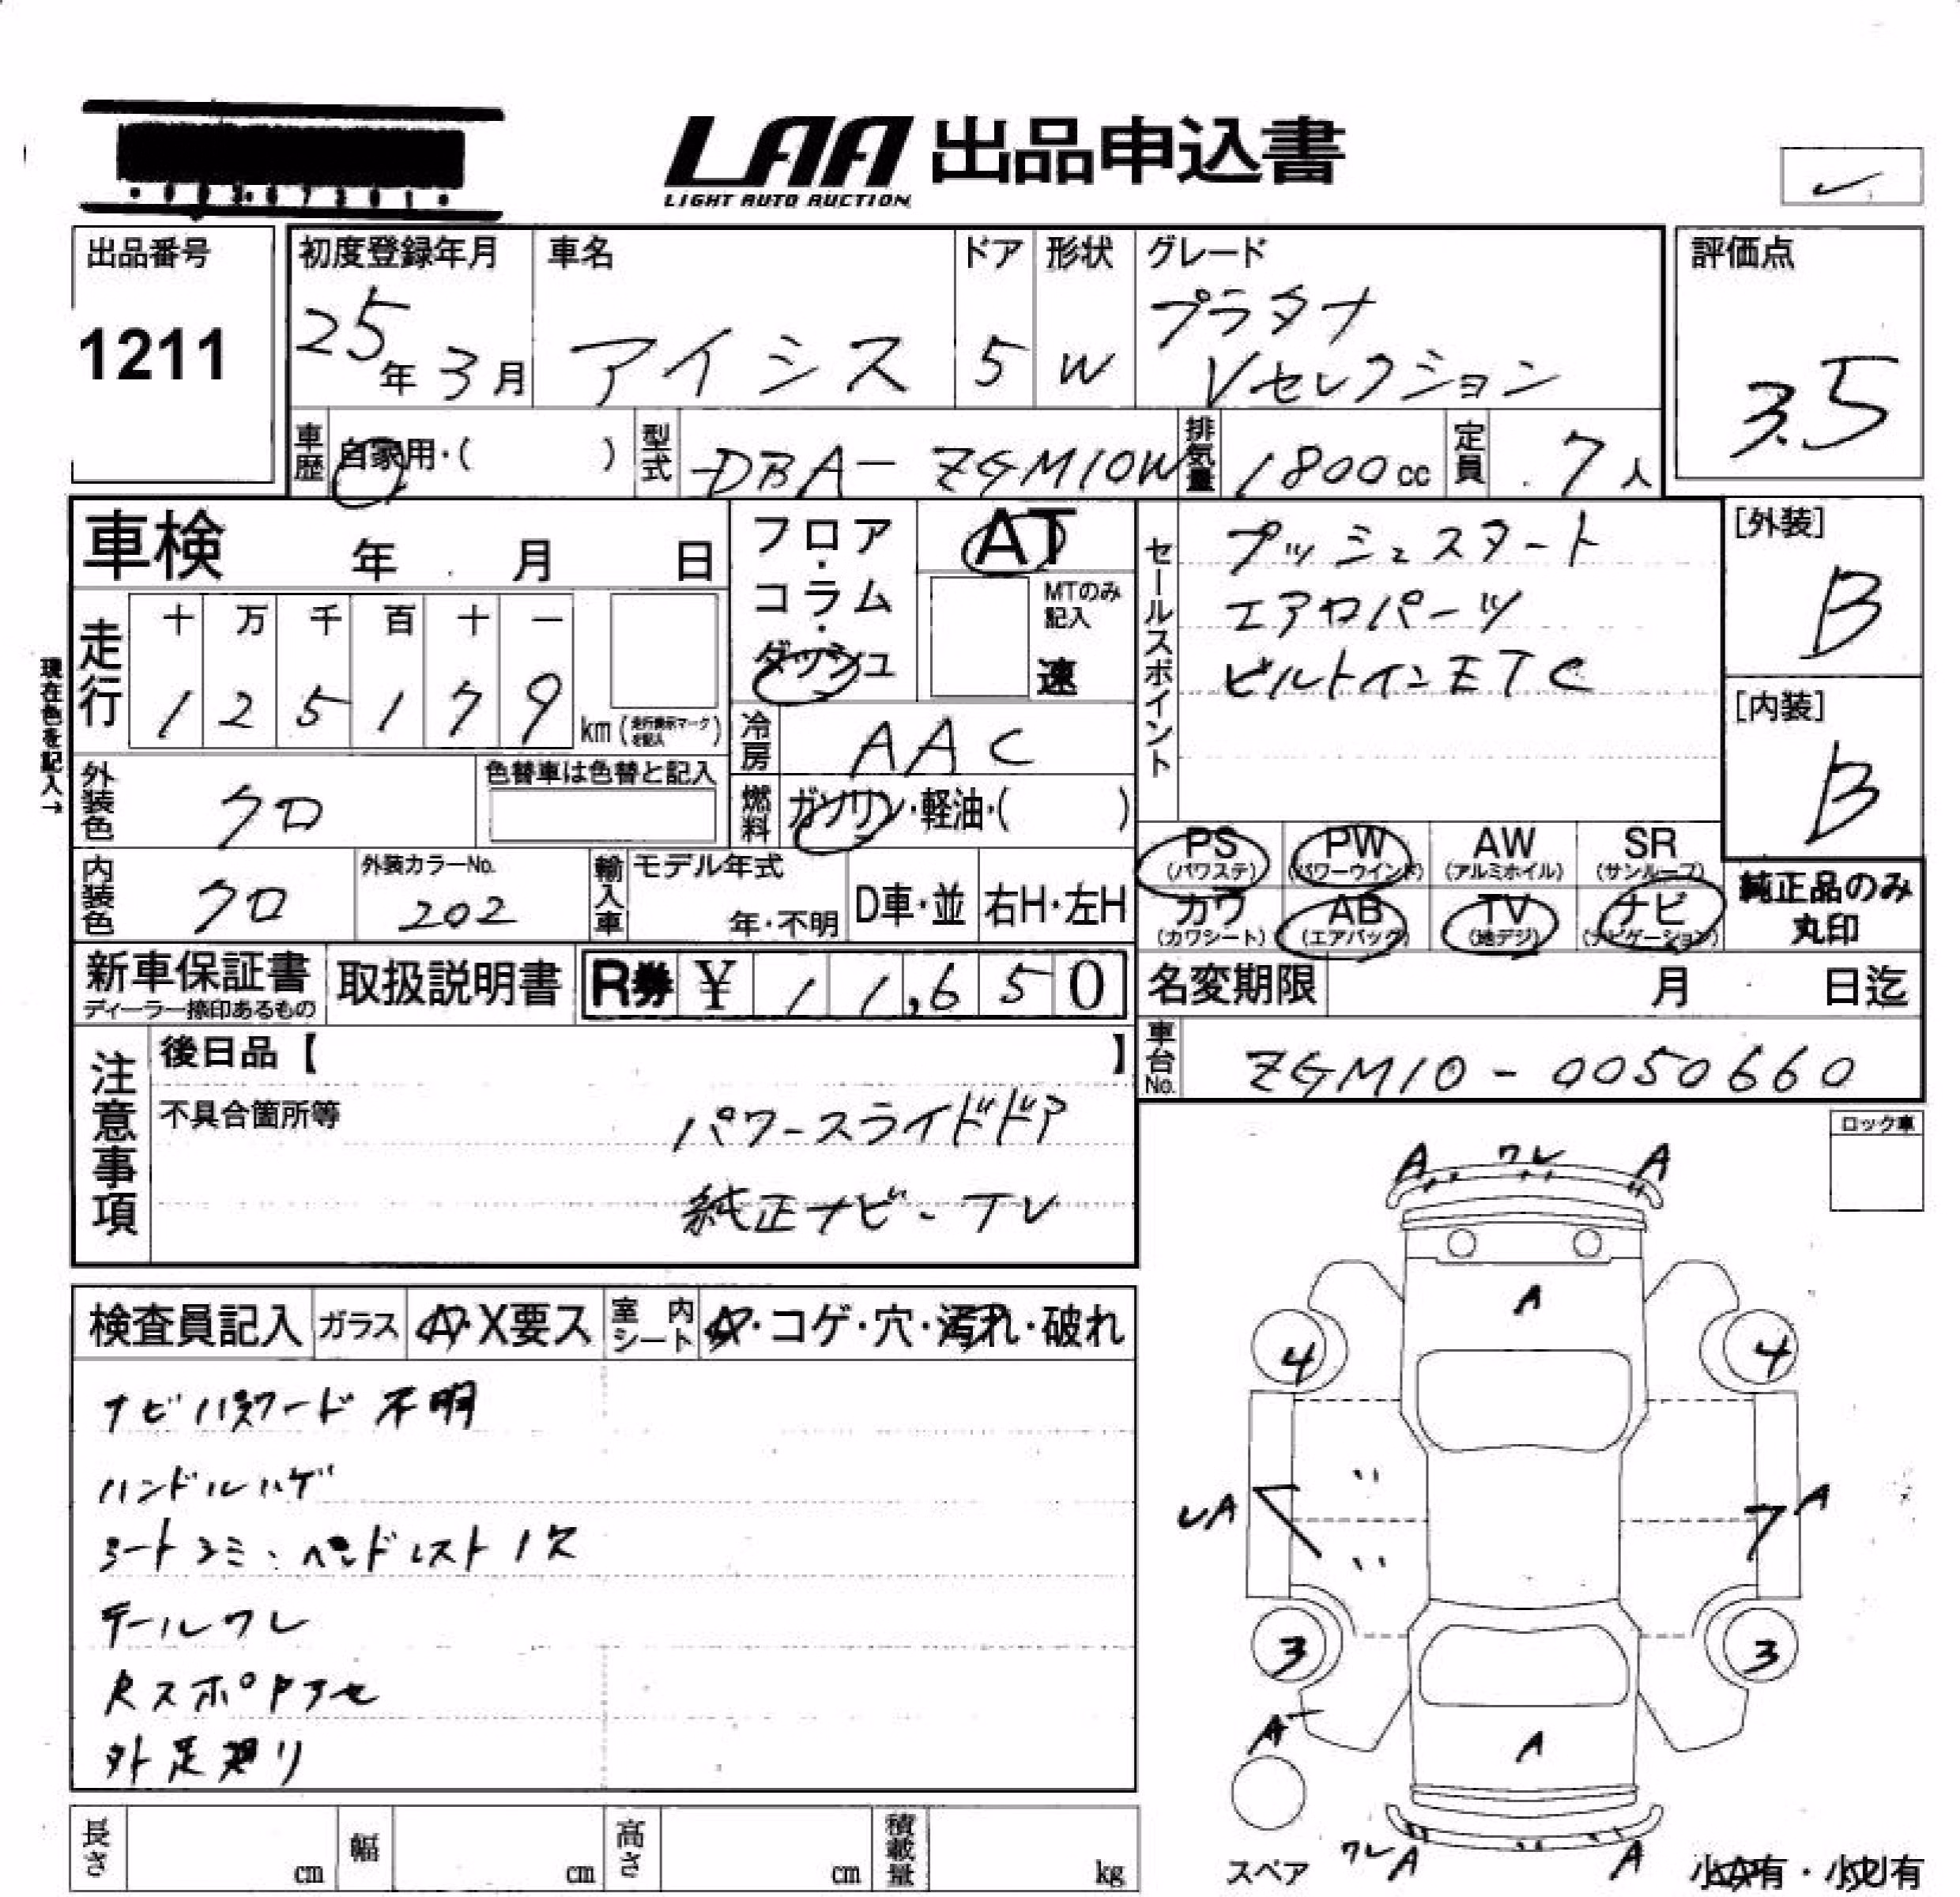 LAA 出品申込書
LIGHT AUTO AUCTION
出品番号
1211
初度登録年月
25年3月
車名
アイシス
ドア
5
形状
W
グレード
プラタナ
Vセレクション
評価点
3.5
車歴 自家用・( )
型式 DBA-ZGM10W
排気量 1800cc
定員 7人
車検 年 月 日
フロア・コラム・ダッシュ
AT
MTのみ記入
速
走行
十 万 千 百 十 一
1 2 5 1 7 9 km(走行表示マークを記入)
現在色を記入→
冷房 AAC
外装色 クロ
色替車は色替と記入
燃料 ガソリン・軽油・( )
内装色 クロ
外装カラーNo.
202
輸入車
モデル年式
年・不明
D車・並
右H・左H
新車保証書
ディーラー捺印あるもの
取扱説明書
R券 ¥ 11,650
セールスポイント
プッシュスタート
エアロパーツ
ビルトインETC
[外装]
B
[内装]
B
PS (パワステ)
PW (パワーウインド)
AW (アルミホイル)
SR (サンルーフ)
カワ (カワシート)
AB (エアバック)
TV (地デジ)
ナビ (ナビゲーション)
純正品のみ丸印
名変期限 月 日迄
車台No. ZGM10-0050660
注意事項
後日品【 】
不具合箇所等
パワースライドドア
純正ナビ・TV
ロック車
検査員記入
ガラス A・X要ス
室内シート A・コゲ・穴・汚れ・破れ
ナビパスワード不明
ハンドルハゲ
シートシミ・ヘッドレスト1欠
テールワレ
RスポDアセ
外足廻り
A ワレ A
A
4 4
A
A
3 3
A
A
ワレ A A
スペア
小A有・小U有
長さ cm
幅 cm
高さ cm
積載量 kg